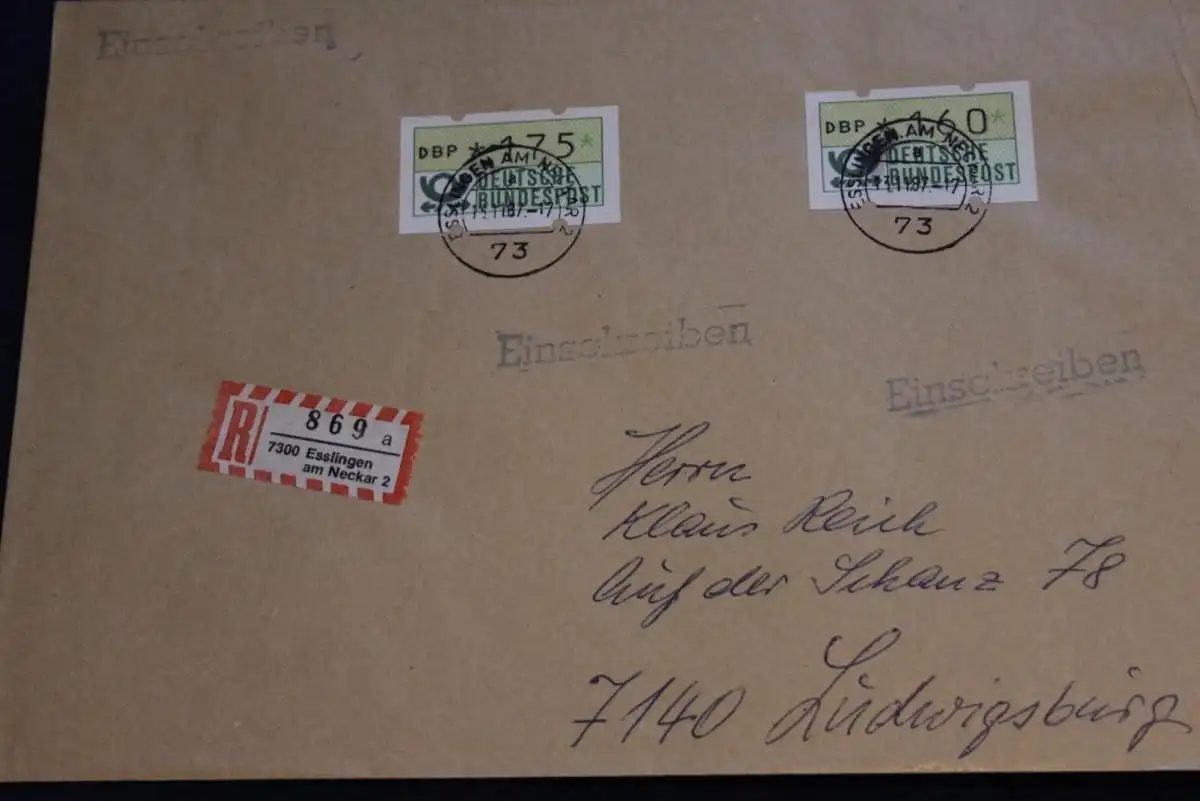 Einschreiben
DBP *175*
DEUTSCHE
BUNDESPOST
ESSLINGEN AM NECKAR 2
a
11.87.-17
73
DBP *160*
DEUTSCHE
BUNDESPOST
ESSLINGEN AM NECKAR 2
a
11.87.-17
73
Einschreiben
Einschreiben
R
869 a
7300 Esslingen
am Neckar 2
Herrn
Klaus Reich
Auf der Schanz 78
7140 Ludwigsburg